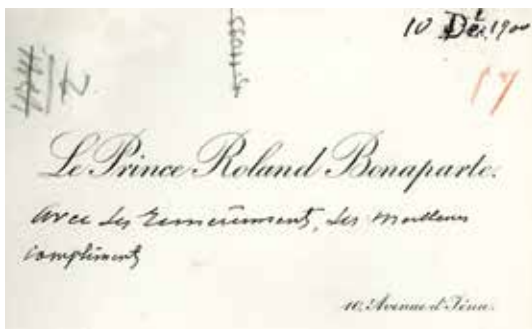 10 Déc 1900
17
Le Prince Roland Bonaparte.
Avec ses remerciments, ses meilleurs
compliments
10, Avenue d'Iéna.